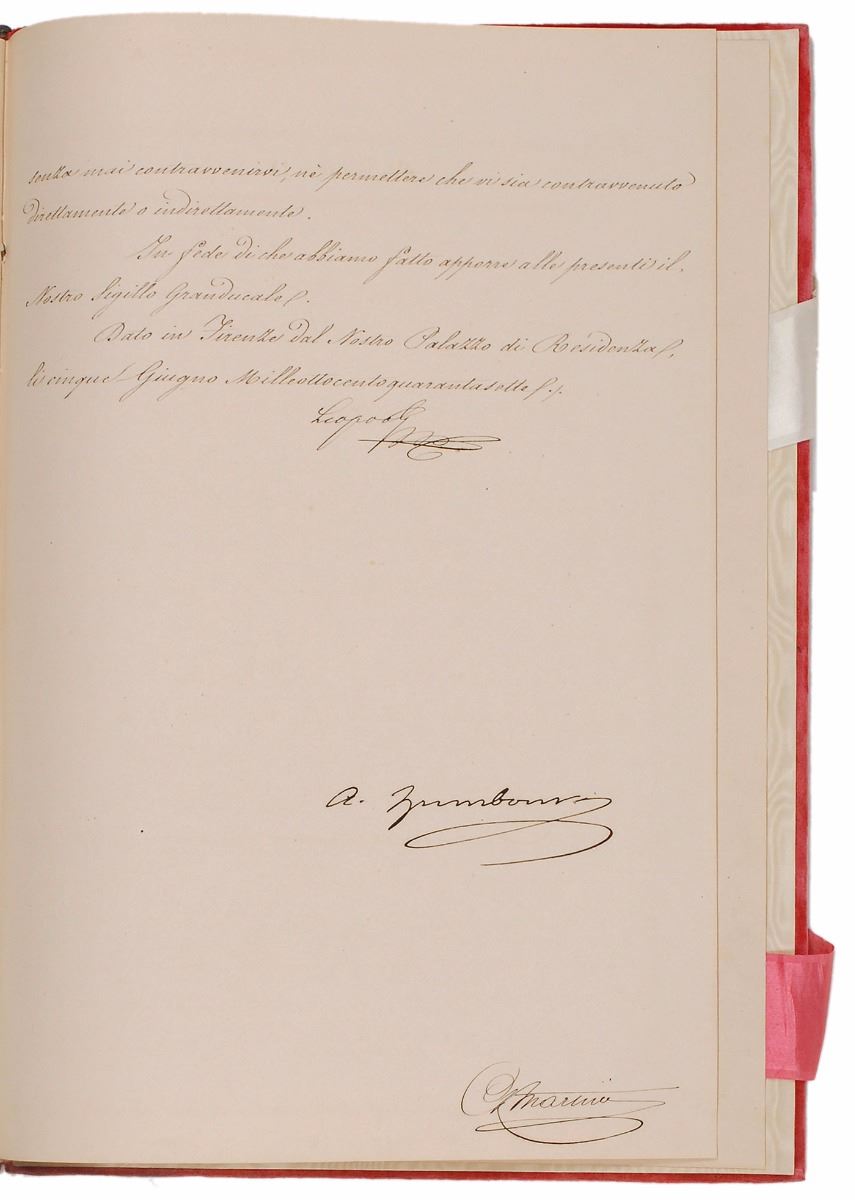 senza mai contravvenirvi, nè permettere che vi sia contravvenuto
direttamente o indirettamente.
In fede di che abbiamo fatto apporre alle presenti il
Nostro Sigillo Granducale.
Dato in Firenze dal Nostro Palazzo di Residenza,
li cinque Giugno Milleottocentoquarantasette.
Leopoldo
A.
Martini